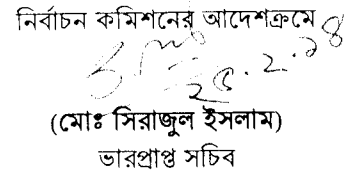 নির্বাচন কমিশনের আদেশক্রমে
২৫.২.১৪
(মোঃ সিরাজুল ইসলাম)
ভারপ্রাপ্ত সচিব